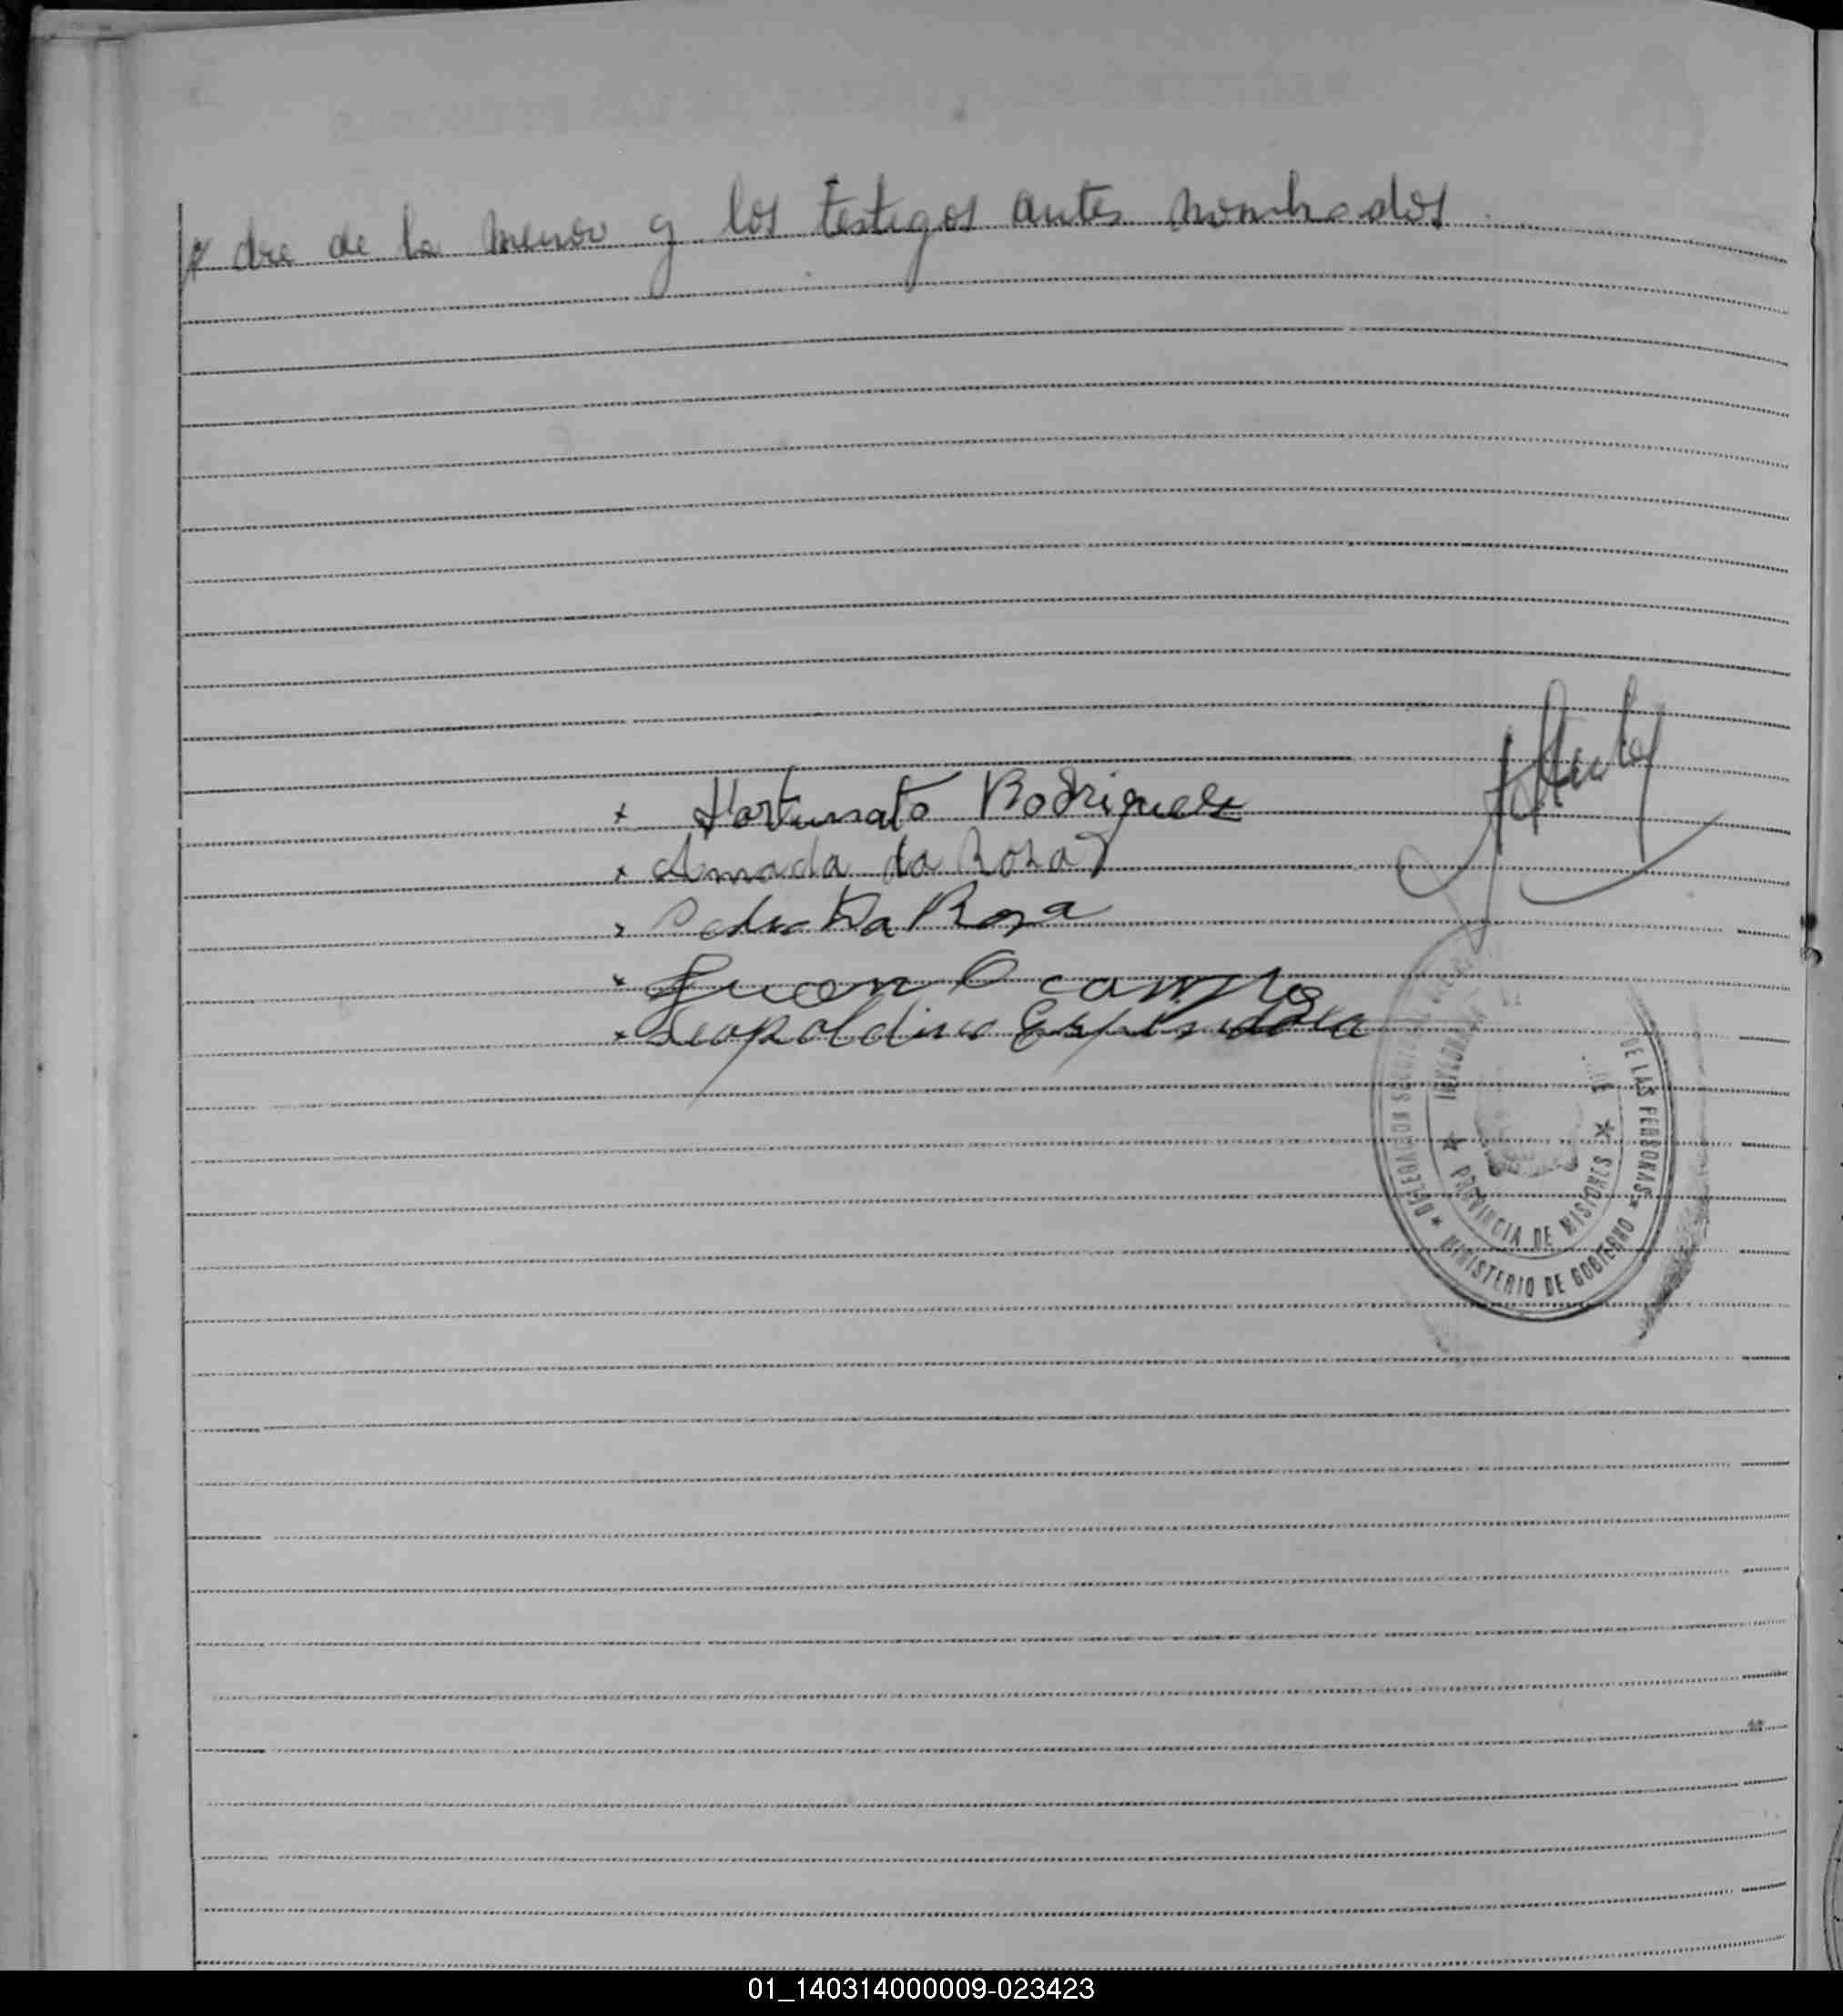 dre de la menor y los testigos antes nombrados
x Fortunato Rodriguez
x Amada da Roza
x Pedro Da Rosa
x Juan Ocampo
x Leopoldino Espindola
DELEGACION
DE LAS PERSONAS
★ MINISTERIO DE GOBIERNO ★
★ PROVINCIA DE MISIONES ★
01_140314000009-023423